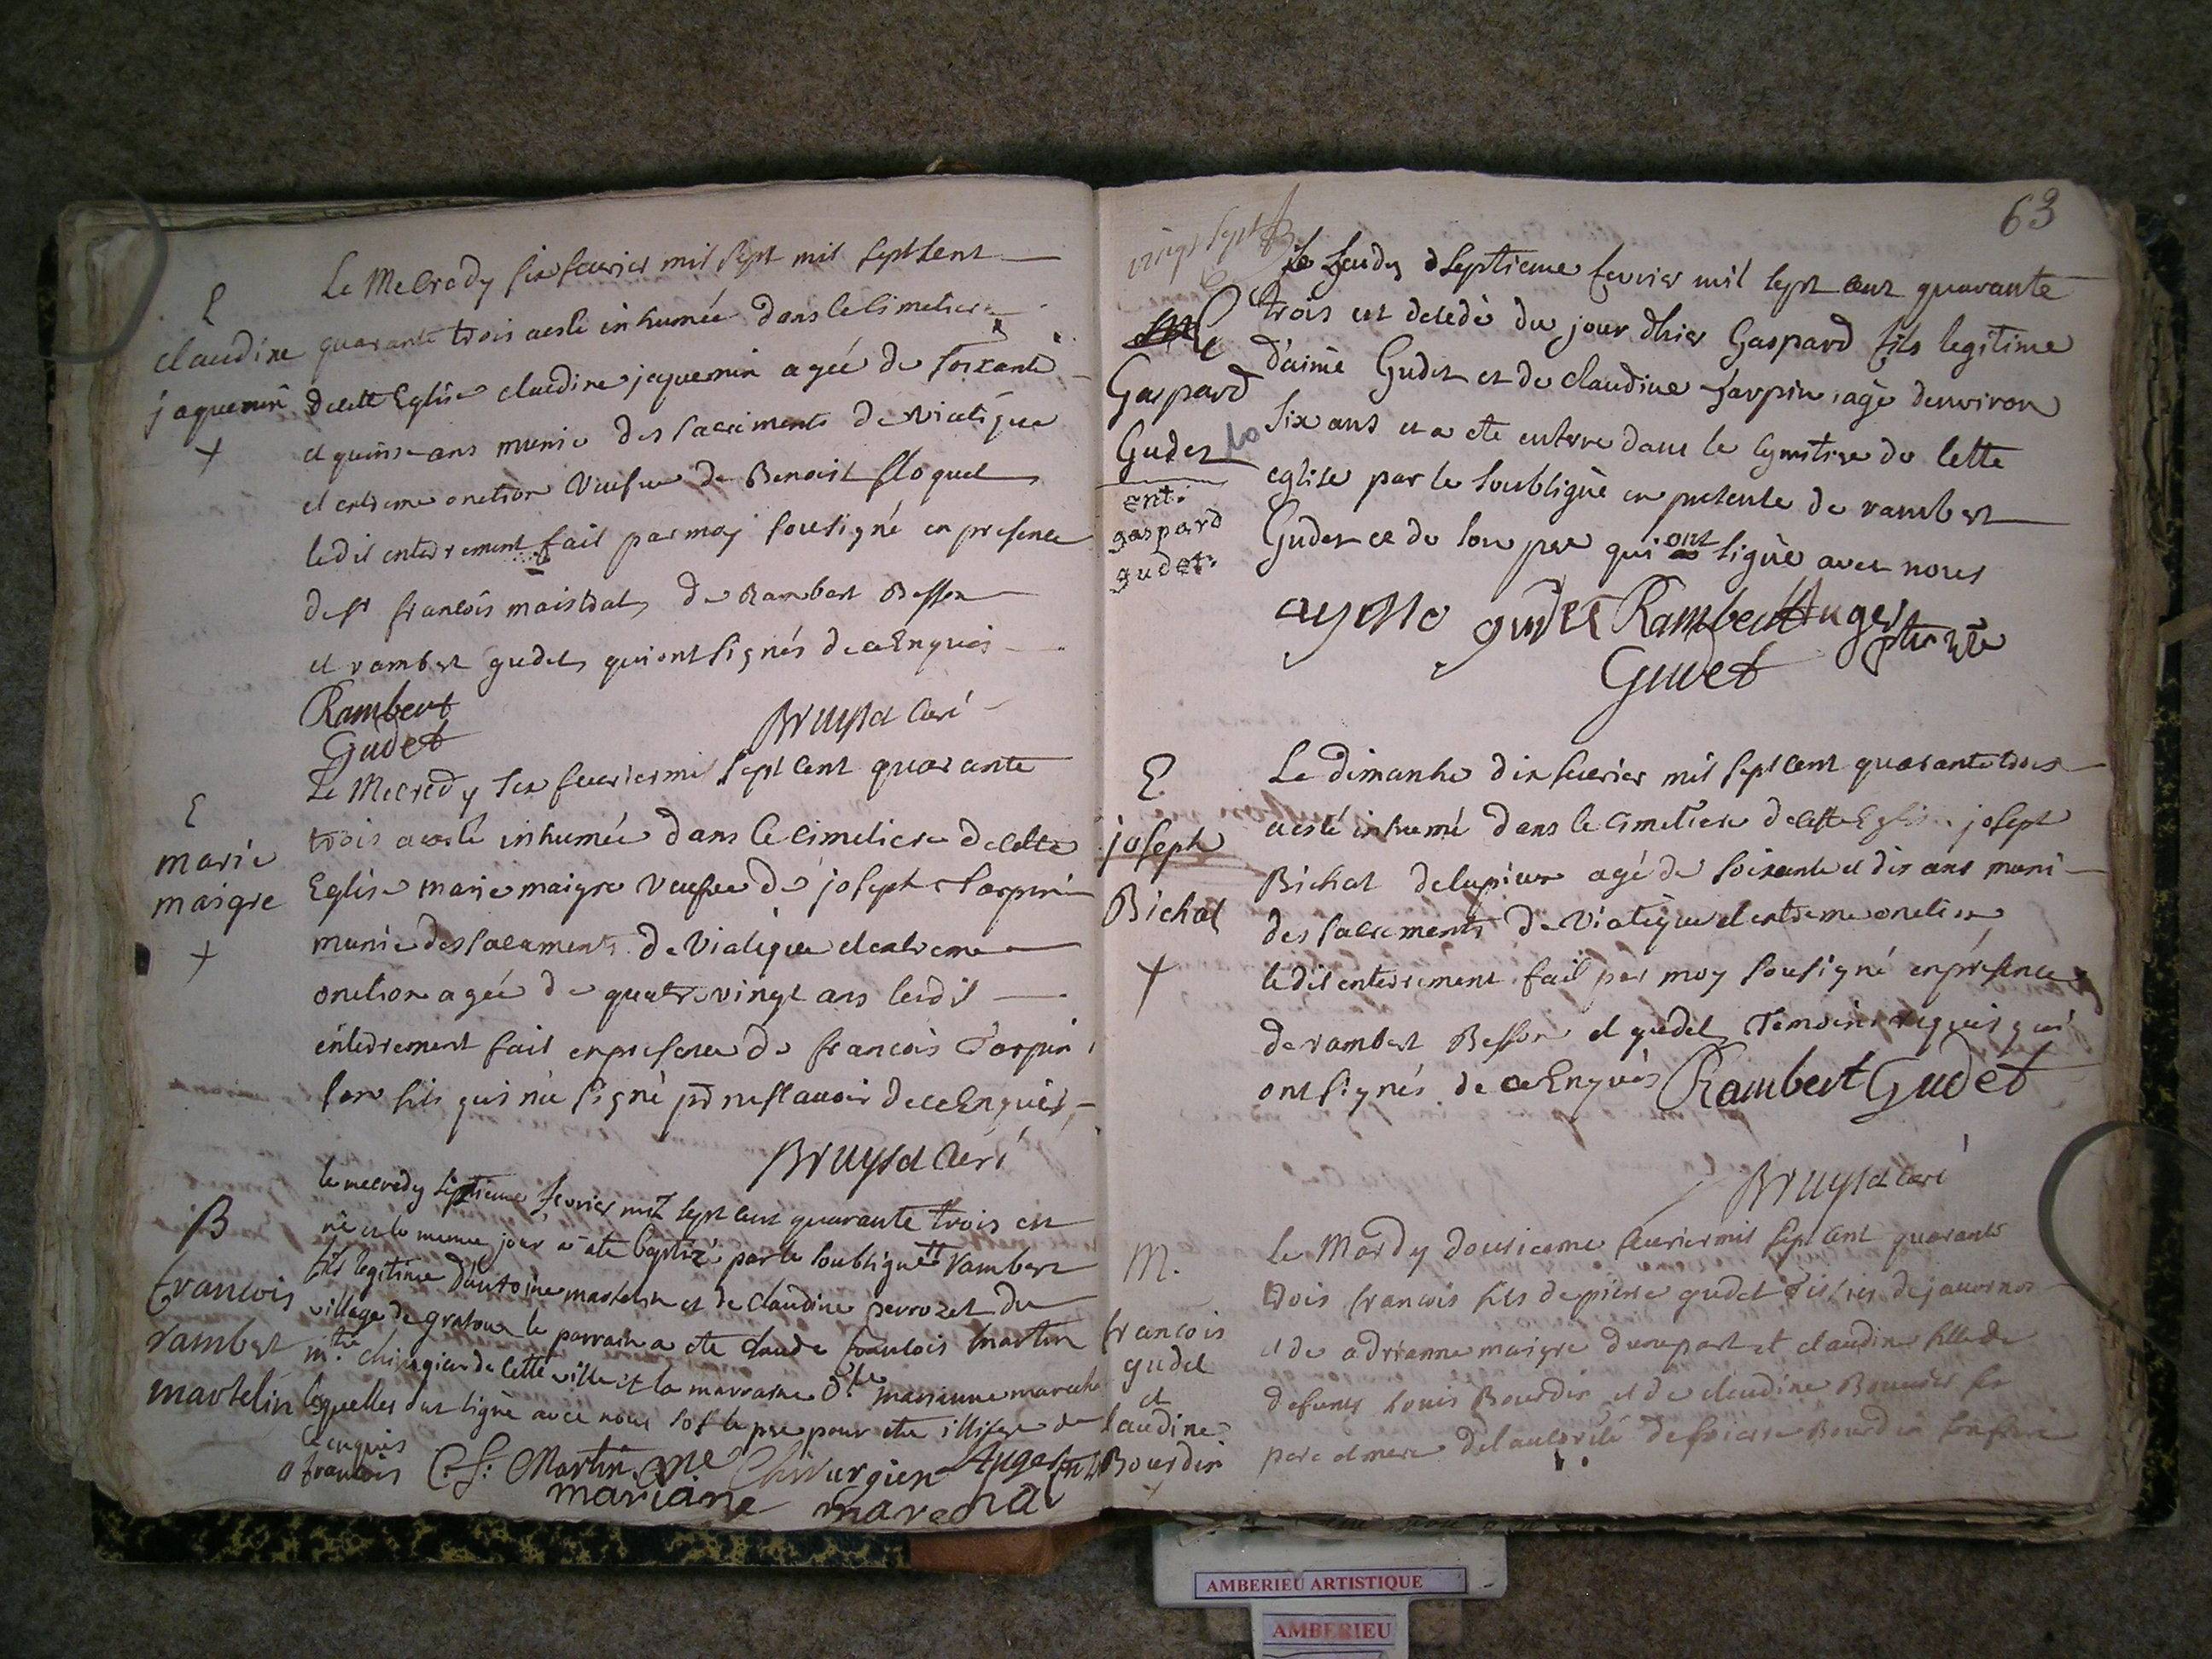 E
claudine
jaquemin
+
Le Mecredy six feuvrier mil sept mil sept sent
quarante trois a esté inhumée dans le cimetiere
de cette Eglise claudine jaquemin agée de soixante
et quinse ans munie des sacrements de viatique
et extreme onction veufue de Benoist floquet
ledit enterrement fait par moy sousigné en presence
de sr francois maistral, de Rambert Besson
et rambert gudet, qui ont signés de ce Enquis
Rambert
Gudet
Bruyset curé
E
marie
maigre
+
Le Mecredy six feuvrier mil sept cent quarante
trois a esté inhumée dans le cimetiere de cette
Eglise marie maigre veufue de joseph Tarpin
munie des sacrements de viatique et extreme
onction agée de quatre vingt ans ledit
enterrement fait en presence de francois Tarpin
son fils qui n'a signé pr ne scauoir de ce Enquis
Bruyset curé
B
francois
rambert
martelin
le mecredy septieme fevrier mil sept cent quarante trois est
né et le meme jour a ete baptizé par le soubsigné rambert
fils legitime d'antoine martelin et de claudine perrozet du
village de gratoux le parrain a ete claude francois martin
mtre chirurgien de cette ville et la marraine dlle marianne marechal
lesquelles ont signé avec nous sof le pre pour etre illiteré de
ce enquis
francois C. f. Martin me Chirurgien Auger
mariane marechal
63
vingt sept
Gaspard
Gudet
10
ent:
gaspard
gudet.
Le Jeudy septieme fevrier mil sept cent quarante
trois est decedé du jour d'hier Gaspard fils legitime
d'aimé Gudet et de claudine Tarpin agé denviron
six ans et a ete enterre dans le cymitire de cette
eglise par le soubsigné en presente de rambert
Gudet et de son pere qui ont signé avec nous
aymo gudet Rambert Auger
Gudet
E.
joseph
Bichat
+
Le dimanche dix feuvrier mil sept cent quarante trois
a esté inhumé dans le cimetiere de cette Eglise joseph
Bichat agé de soixante et dix ans muni
des sacrements de viatique et extreme onction
ledit enterrement fait par moy sousigné en présence
de rambert Besson et gudet Temoins requis qui
ont signés de ce Enquis Rambert Gudet
Bruyset curé
M.
francois
gudet
et
claudine
Bourdin
+
Le Mardy dousieme feuvrier mil sept cent quarante
trois francois fils de pierre gudet
et de adrianne maigre dune part et claudine fille de
defunts Louis Bourdin et de claudine
pere et mere de l'autorité de pierre Bourdin son frere
AMBERIEU ARTISTIQUE
AMBERIEU